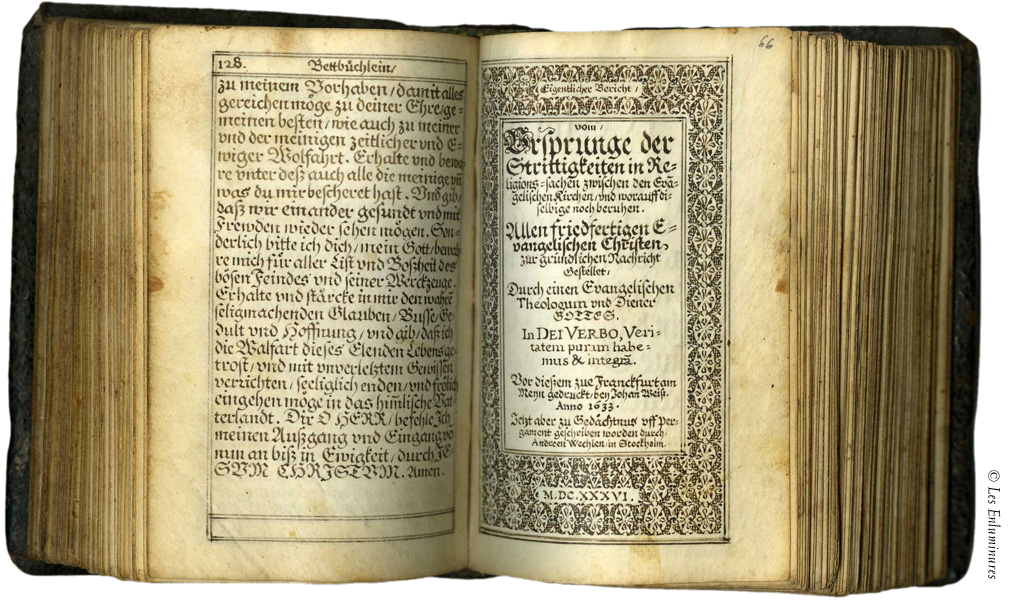 128.
Bettbüchlein/
zu meinem Vorhaben / damit alles
gereichen möge zu deiner Ehre/ge=
meinen besten / wie auch zu meiner
vnd der meinigen zeitlicher vnd E=
wiger Wolfahrt. Erhalte vnd bewa=
re vnter deß auch alle die meinige vñ
was du mir bescheret hast. Vnd gib/
daß wir einander gesundt vnd mit
Frewden wieder sehen mögen. Son=
derlich bitte ich dich / mein Gott/bewah=
re mich für aller List vnd Boßheit des
bösen Feindes vnd seiner Werckzeuge.
Erhalte vnd stärcke in mir den wahrē
seligmachenden Glauben / Busse / Ge=
dult vnd Hoffnung / vnd gib / daß ich
die Walfart dieses Elenden Lebens ge=
trost / vnd mit vnverletztem Gewissen
verrichten / seeliglich enden / vnd frölich
eingehen möge in das him̃lische Vat=
terlandt. Dir O HERR / befehle Ich
meinen Außgang vnd Eingang vō
nun an biß in Ewigkeit / durch JE=
SVM CHRISTVM. Amen.
66
Eigentlicher Bericht /
vom /
Vrsprunge der
Strittigkeiten in Re=
ligions=sachen zwischen den Evā=
gelischen Kirchen / vnd worauff di=
selbige noch beruhen.
Allen friedfertigen E=
vangelischen Christen,
zur gründlichen Nachricht
Gestellet /
Durch einen Evangelischen
Theologum vnd Diener
GOTTES.
In DEI VERBO, Veri=
tatem puram habe=
mus & integrā.
Vor dießem zue Franckfurt am
Meyn gedruckt / bey Johan Weiß.
Anno 1633.
Jetzt aber zu Gedächtnus vff Per=
gament geschriben worden durch /
Andreen Wechlen / in Stockholm.
M.DC.XXXVI.
© Les Enluminures